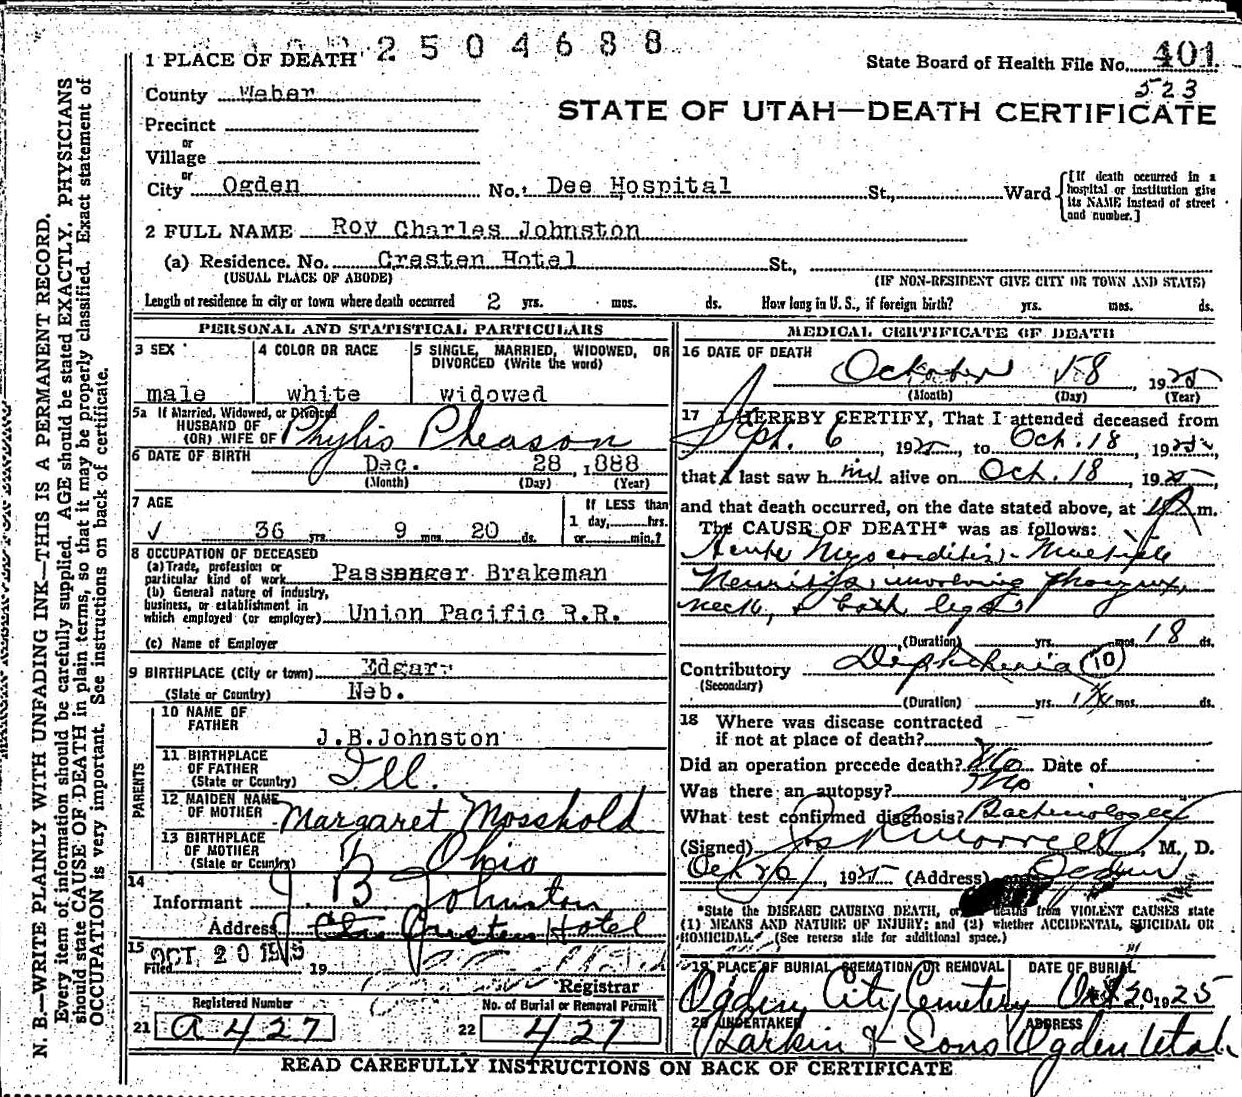 2504688
1 PLACE OF DEATH
State Board of Health File No. 401
523
County Weber
STATE OF UTAH—DEATH CERTIFICATE
Precinct
or
Village
or
City Ogden No. Dee Hospital St., Ward
[If death occurred in a hospital or institution give its NAME instead of street and number.]
2 FULL NAME Roy Charles Johnston
(a) Residence. No. Crasten Hotel St.,
(USUAL PLACE OF ABODE) (IF NON-RESIDENT GIVE CITY OR TOWN AND STATE)
Length of residence in city or town where death occurred 2 yrs. mos. ds. How long in U. S., if foreign birth? yrs. mos. ds.
PERSONAL AND STATISTICAL PARTICULARS
3 SEX 4 COLOR OR RACE 5 SINGLE, MARRIED, WIDOWED, OR DIVORCED (Write the word)
male white widowed
5a If Married, Widowed, or Divorced
HUSBAND OF
(OR) WIFE OF Phylis Pleason
6 DATE OF BIRTH Dec. 28, 1888
(Month) (Day) (Year)
7 AGE
If LESS than
1 day, hrs.
or min.?
√ 36 yrs. 9 mos. 20 ds.
8 OCCUPATION OF DECEASED
(a) Trade, profession or
particular kind of work Passenger Brakeman
(b) General nature of industry,
business, or establishment in
which employed (or employer) Union Pacific R.R.
(c) Name of Employer
9 BIRTHPLACE (City or town) Edgar
(State or Country) Neb.
PARENTS
10 NAME OF
FATHER J.B.Johnston
11 BIRTHPLACE
OF FATHER
(State or Country) Ill.
12 MAIDEN NAME
OF MOTHER Margaret Mosshold
13 BIRTHPLACE
OF MOTHER
(State or Country) Ohio
14
Informant J B Johnston
Address Hotel
15
Filed OCT 20 1925 19
Registrar
Registered Number No. of Burial or Removal Permit
21 a 427 22 427
MEDICAL CERTIFICATE OF DEATH
16 DATE OF DEATH
October 18, 1925
(Month) (Day) (Year)
17 I HEREBY CERTIFY, That I attended deceased from
Sept. 6 1925, to Oct. 18, 1925,
that I last saw h im alive on Oct. 18, 1925,
and that death occurred, on the date stated above, at m.
The CAUSE OF DEATH* was as follows:
Acute Myocarditis, Multiple
Neuritis, involving pharynx,
neck, & both legs
(Duration) yrs. mos. 18 ds.
Contributory Diphtheria (10)
(Secondary)
(Duration) yrs. mos. ds.
18 Where was disease contracted
if not at place of death?
Did an operation precede death? No Date of
Was there an autopsy? No
What test confirmed diagnosis?
(Signed) Jos R Morrell, M. D.
Oct 20, 1925 (Address) Ogden
*State the DISEASE CAUSING DEATH, or deaths from VIOLENT CAUSES state
(1) MEANS AND NATURE OF INJURY; and (2) whether ACCIDENTAL, SUICIDAL OR
HOMICIDAL. (See reverse side for additional space.)
19 PLACE OF BURIAL CREMATION OR REMOVAL DATE OF BURIAL
Ogden City Cemetery Oct 20, 1925
20 UNDERTAKER ADDRESS
Larkin & Sons Ogden Utah
READ CAREFULLY INSTRUCTIONS ON BACK OF CERTIFICATE
N. B.—WRITE PLAINLY WITH UNFADING INK—THIS IS A PERMANENT RECORD.
Every item of information should be carefully supplied. AGE should be stated EXACTLY. PHYSICIANS
should state CAUSE OF DEATH in plain terms, so that it may be properly classified. Exact statement of
OCCUPATION is very important. See instructions on back of certificate.